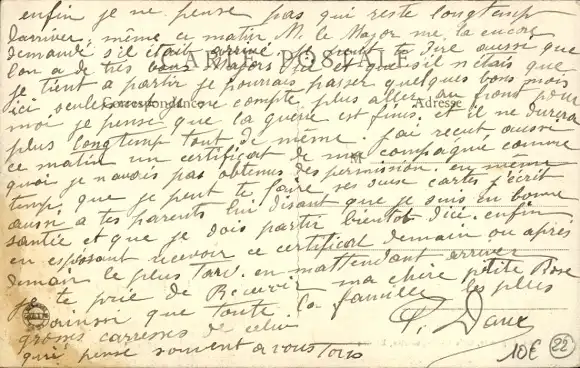 enfin je ne pense pas qui reste longtemp
darriver, même ce matin M. le Major me la encore
demandé s'il était arrivé. je peut te dire aussi que
lon a de très bons Majors ici et que s'il n'étais que
je tient a partir je pourrais passer quelques bons mois
ici seulement compte plus aller au front pour
moi je pense que la guerre est finis et il ne durera
plus longtemp tout de même. j'ai recut aussi
ce matin un certificat de ma compagnie comme
quoi je navois pas obtenus des permission. en même
temp que je peut te faire ses deux cartes j'écrit
aussi a tes parents lui disant que je suis en bonne
santée et que je dois partir bientot d'ici. enfin
en esposant recevoir ce certificat demain ou après
demain le plus tard. en mattendant arriver
je te prie de Recevoir ma chere petite Rose
ainsi que toute la famille les plus
grosses carresses de celui
qui pense souvent a vous tous
CARTE POSTALE
Correspondance
Adresse
M
10€
22